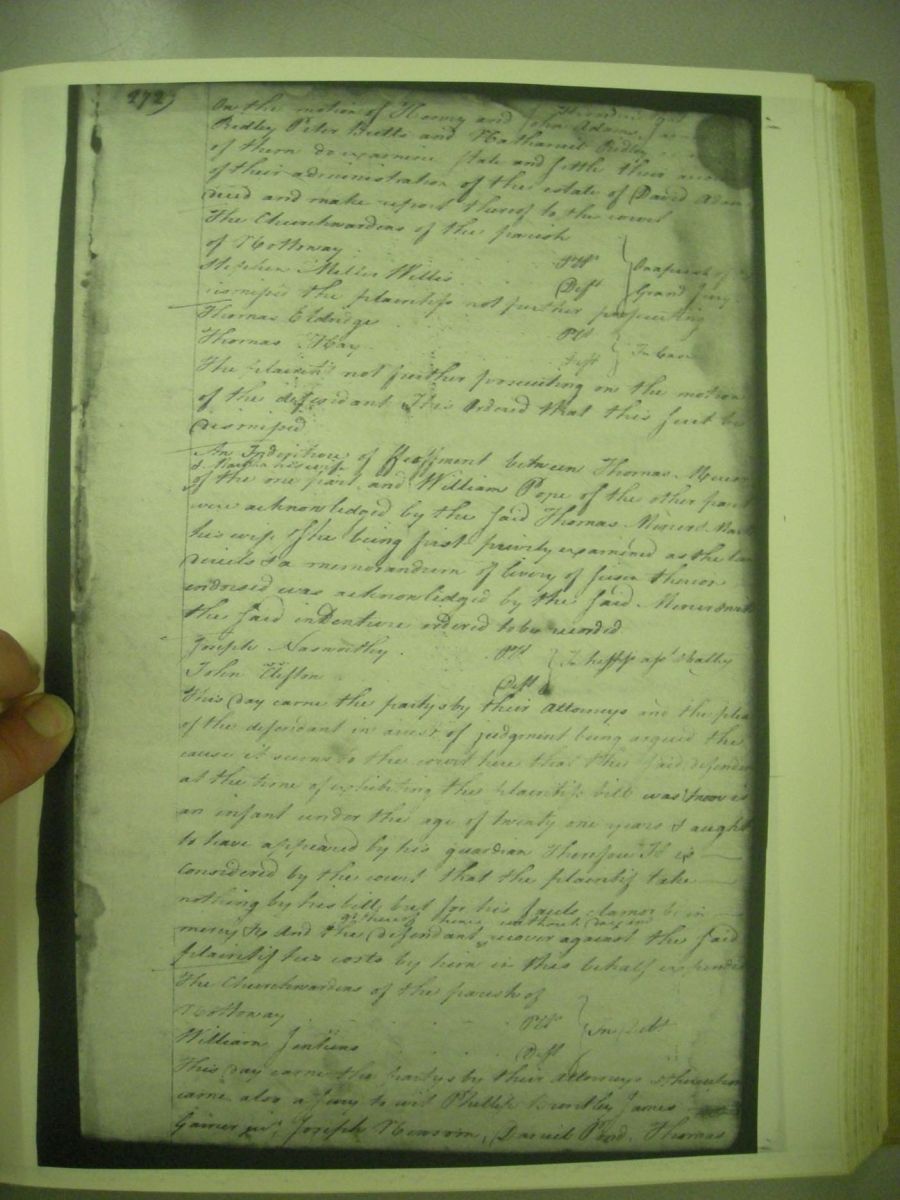 272)
On the motion of Henry and John Adams, James
Ridley Peter Butts and Nathaniel Ridley
of them do examine state and settle their
of their administration of the estate of David Adams
deced and make report thereof to the court
The Churchwardens of the parish
of Nottoway Plts
Stephen Miller Willis Deft On a presentmt of Grand Jury
dismissed the plaintifs not further prosecuting
Thomas Eldridge Plt
Thomas Hay Deft In Case
The plaintif not further prosecuting on the motion
of the defendant It is Ordered that this suit be
dismissed
An Indenture of Feoffment between Thomas
& Martha his wife
of the one part and William Pope of the other part
were acknowledged by the said Thomas
his wife (she being first privily examined as the law
directs & a memorandum of livery of seisin thereon
endorsed was acknowledged by the said
the said indenture ordered to be recorded
Joseph Nasworthy Plt
John Clifton Deft In Trespass apt Battry
This day came the partys by their attorneys and the plea
of the defendant in arrest of judgment being argued the
cause it seems to the court here that the said defendt
at the time of exhibiting the plaintifs bill was & now is
an infant under the age of twenty one years & aught
to have appeared by his guardian Therefore It is
considered by the court that the plaintif take
nothing by his bill but for his false clamor be in
go thereof hence without day and
mercy &c And the defendant recover against the said
plaintif his costs by him in this behalf expended
The Churchwardens of the parish of
Nottoway Plts
William Jenkins Deft In Debt
This day came the partys by their attorneys & thereupon
came also a Jury to wit Phillip Brantley James
Garner Joseph Newsom, Daniel Pond, Thomas